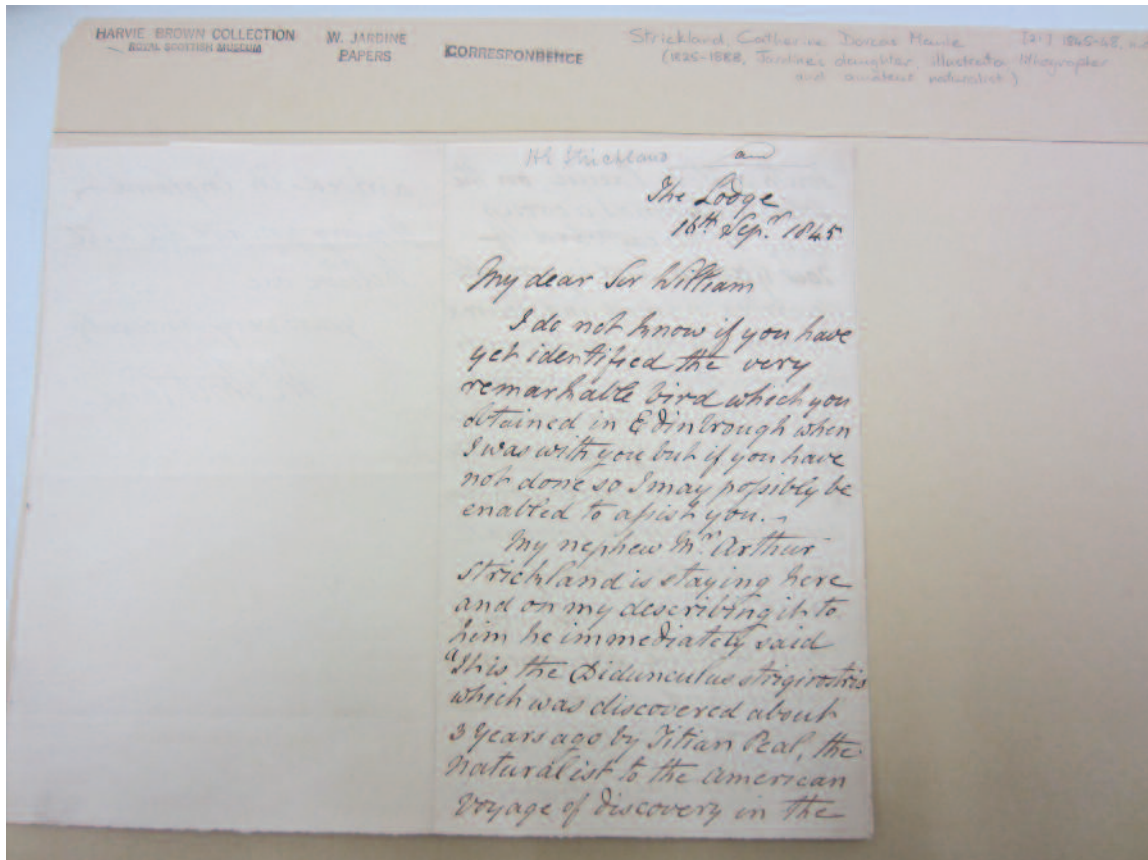 HARVIE BROWN COLLECTION
ROYAL SCOTTISH MUSEUM
W. JARDINE
PAPERS
CORRESPONDENCE
Strickland, Catherine Dorcas Maule [21] 1845-48,
(1825-1888, Jardine's daughter, illustrator, lithographer
and amateur naturalist)
HE Strickland
The Lodge
16th Sepr. 1845
My dear Sir William
I do not know if you have
yet identified the very
remarkable bird which you
obtained in Edinbrough when
I was with you but if you have
not done so I may possibly be
enabled to assist you. -
My nephew Mr. Arthur
Strickland is staying here
and on my describing it to
him he immediately said
"It is the Didunculus strigirostris
which was discovered about
3 years ago by Titian Peal, the
Naturalist to the American
Voyage of Discovery in the